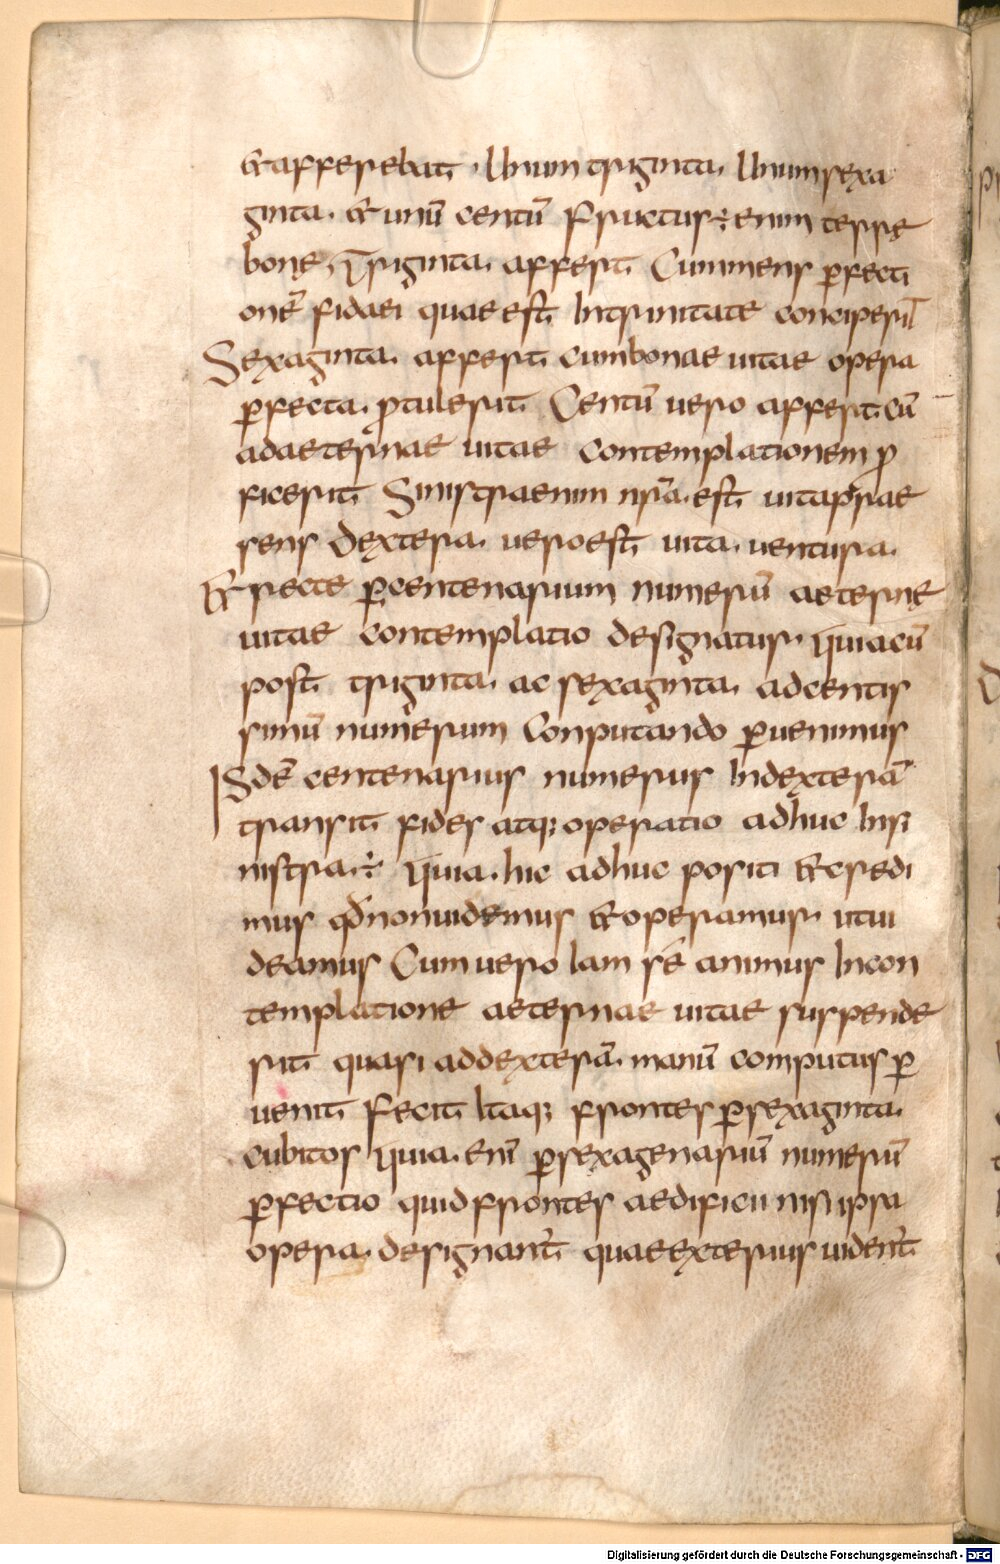 & afferebat. Unum triginta. Unum sexa
ginta. & unū centū fructus ÷ enim terrę
bonę, q̄ triginta. affert. Cum mens ꝑfecti
onē fidaei quae est In trinitate conciperit
Sexaginta. affert. cum bonae uitae opera
ꝑfecta. ꝓtulerit. Centū uero affert. cū
ad aeternae uitae contemplationem ꝓ
ficerit. Sinistra enim nr̄a. est uita prae
sens Dextera. uero est uita. uentura.
& recte ꝑ centenarium numerū aeternę
uitae contemplatio designatur. Quia cū
post triginta. ac sexaginta. ad centis
simū numerum Conputando ꝑuenimus
Isdē centenarius numerus In dexterā
transit. fides atq; operatio adhuc In si
nistra. ÷ Quia. hic adhuc positi & credi
mus qđ non uidemus & operamur. ut ui
deamus Cum uero Iam sē animus In con
templatione aeternae uitae suspende
rit quasi ad dexterā. manū computus ꝑ
uenit. Fecit Itaq; frontes ꝑ sexaginta.
cubitos Quia. enī ꝑ sexagenariū numerū
ꝑfectio quid frontes aedificii nisi ipsa
opera. designant̄ quae exterius uident̄
Digitalisierung gefördert durch die Deutsche Forschungsgemeinschaft - DFG